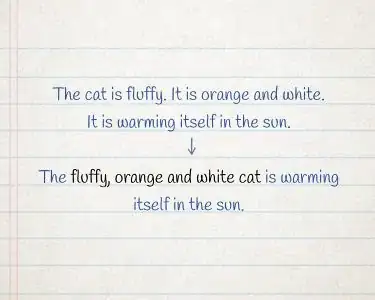 The cat is fluffy. It is orange and white.
It is warming itself in the sun.
↓
The fluffy, orange and white cat is warming
itself in the sun.